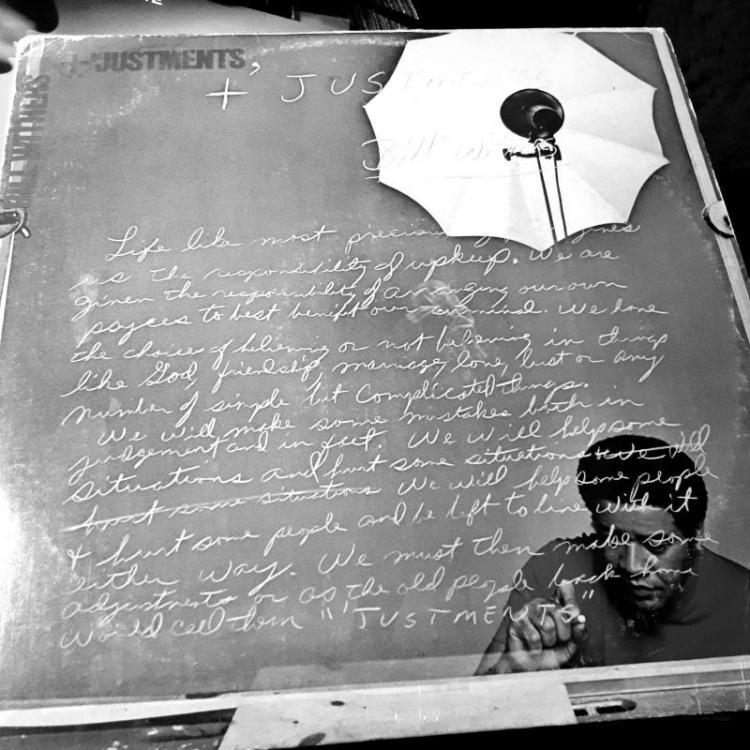 +'JUSTMENTS
BILL WITHERS
+'JUSTMENTS
Bill Withers
Life like most precious
us the responsibility of upkeep. We are
given the responsibility of arranging our own
psyces to best benefit our mind. We have
the choices of believing or not believing in things
like God, friendship, marriage, love, lust or any
number of simple but complicated things.
We will make some mistakes both in
judgement and in fact. We will help some
situations and hurt some situations We will
hurt some situations We will help some people
+ hurt some people and be left to live with it
either way. We must then make some
adjustments or as the old people back home
would call them "'JUSTMENTS."